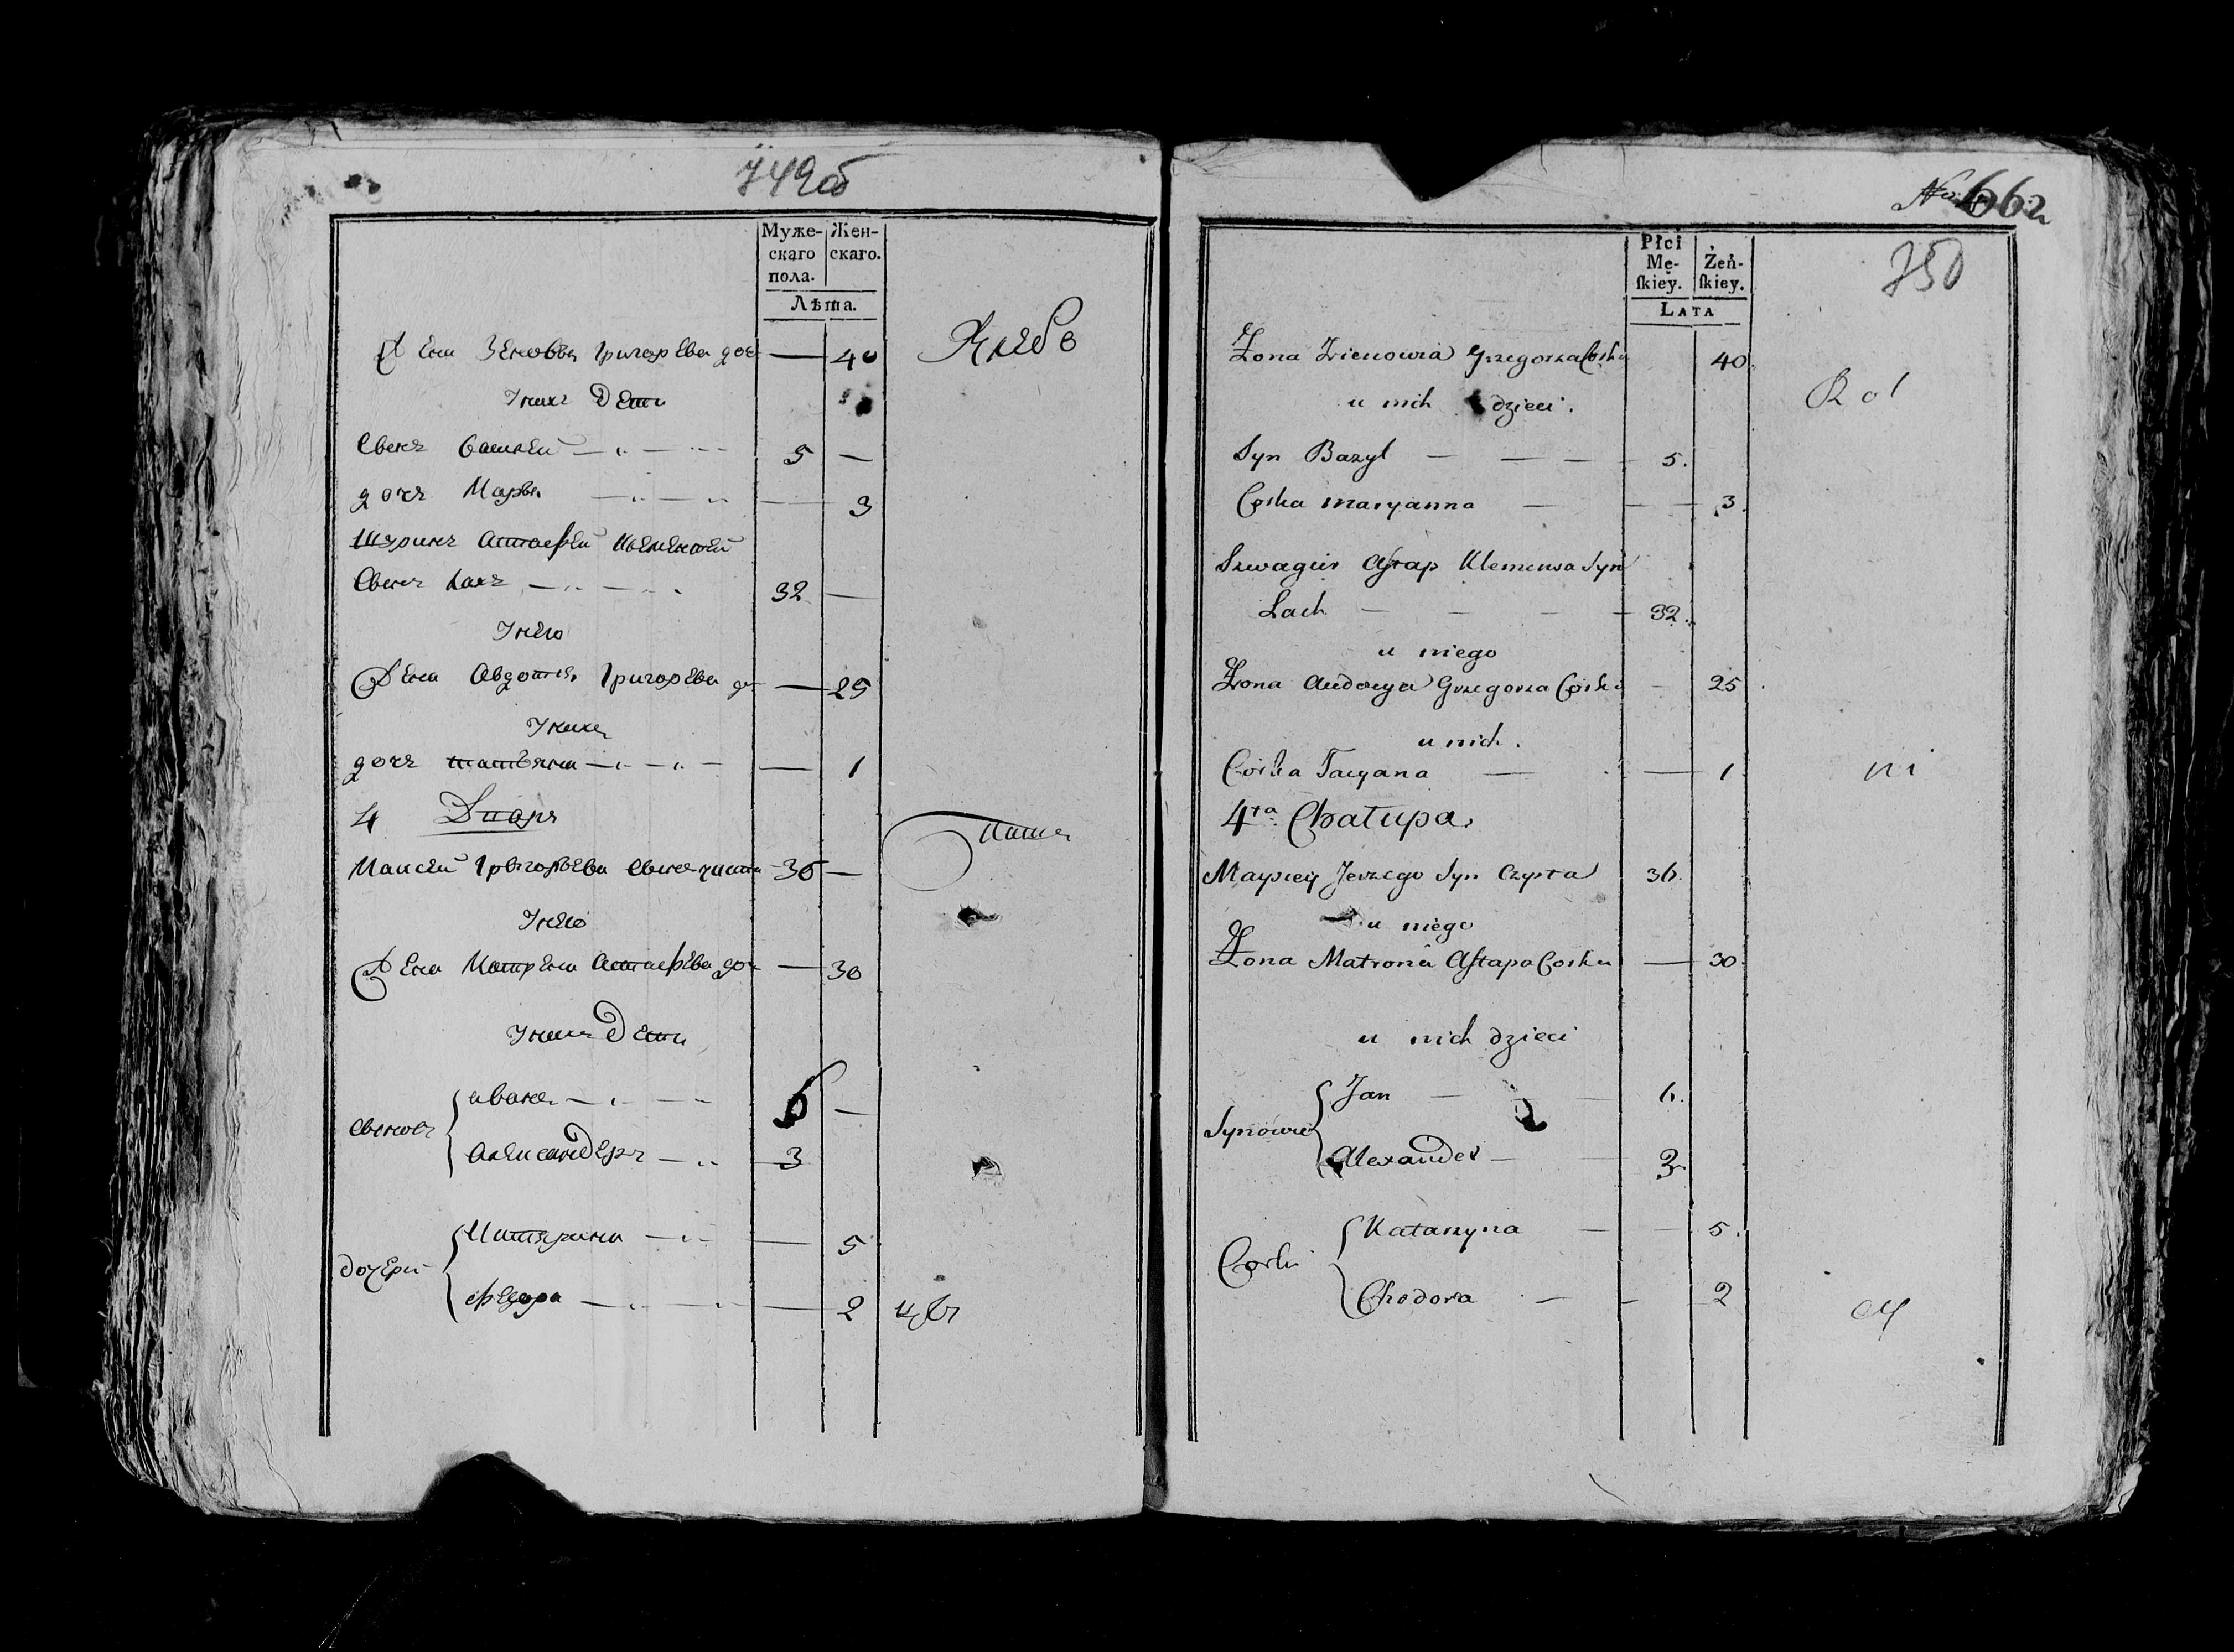 749об
Муже-
скаго
пола.
Жен-
скаго.
Лѣта.
Жена Зеновья Григорева доч — 40
Уних Дети
Сынъ Василей — 5 —
дочъ Марья — 3
Шуринъ Астафей Клементей
Сынъ Лахъ — 32 —
Унего
Жена Авдотья Григорева до — 25
Уних
дочъ татьяна — 1
4 Дворъ
Маисей Григорьева Сынъ чиста 36 —
Унего
Жена Матрена Астафева доч — 30
Уних Дети
Сыновъ
иванъ — 6 —
Александеръ — 3
дочери
Катерина — 5
Федора — 2
662
750
Płci
Mę-
ſkiey.
Żeń-
ſkiey.
LATA
Żona Zienowia Grzegorza Corka 40.
u nich dzieci.
Syn Bazyl — 5.
Corka Maryanna — 3.
Szwagier Astap Klemensa Syn
Lach — 32.
u niego
Żona Audocya Grzegorza Corka — 25
u nich.
Corka Tacyana — 1
4ta Chałupa.
Maysiey Jerzego Syn Czysta 36.
u niego
Żona Matrona Astapa Corka — 30.
u nich dzieci
Synowie
Jan — 6.
Alexander — 3
Corki
Katarzyna — 5.
Chodora — 2